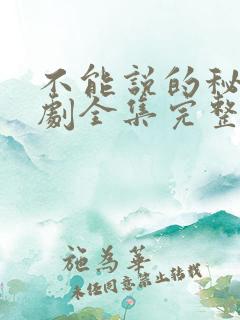 不能説的秘
劇全集完整
施為華
未任同意禁止转载